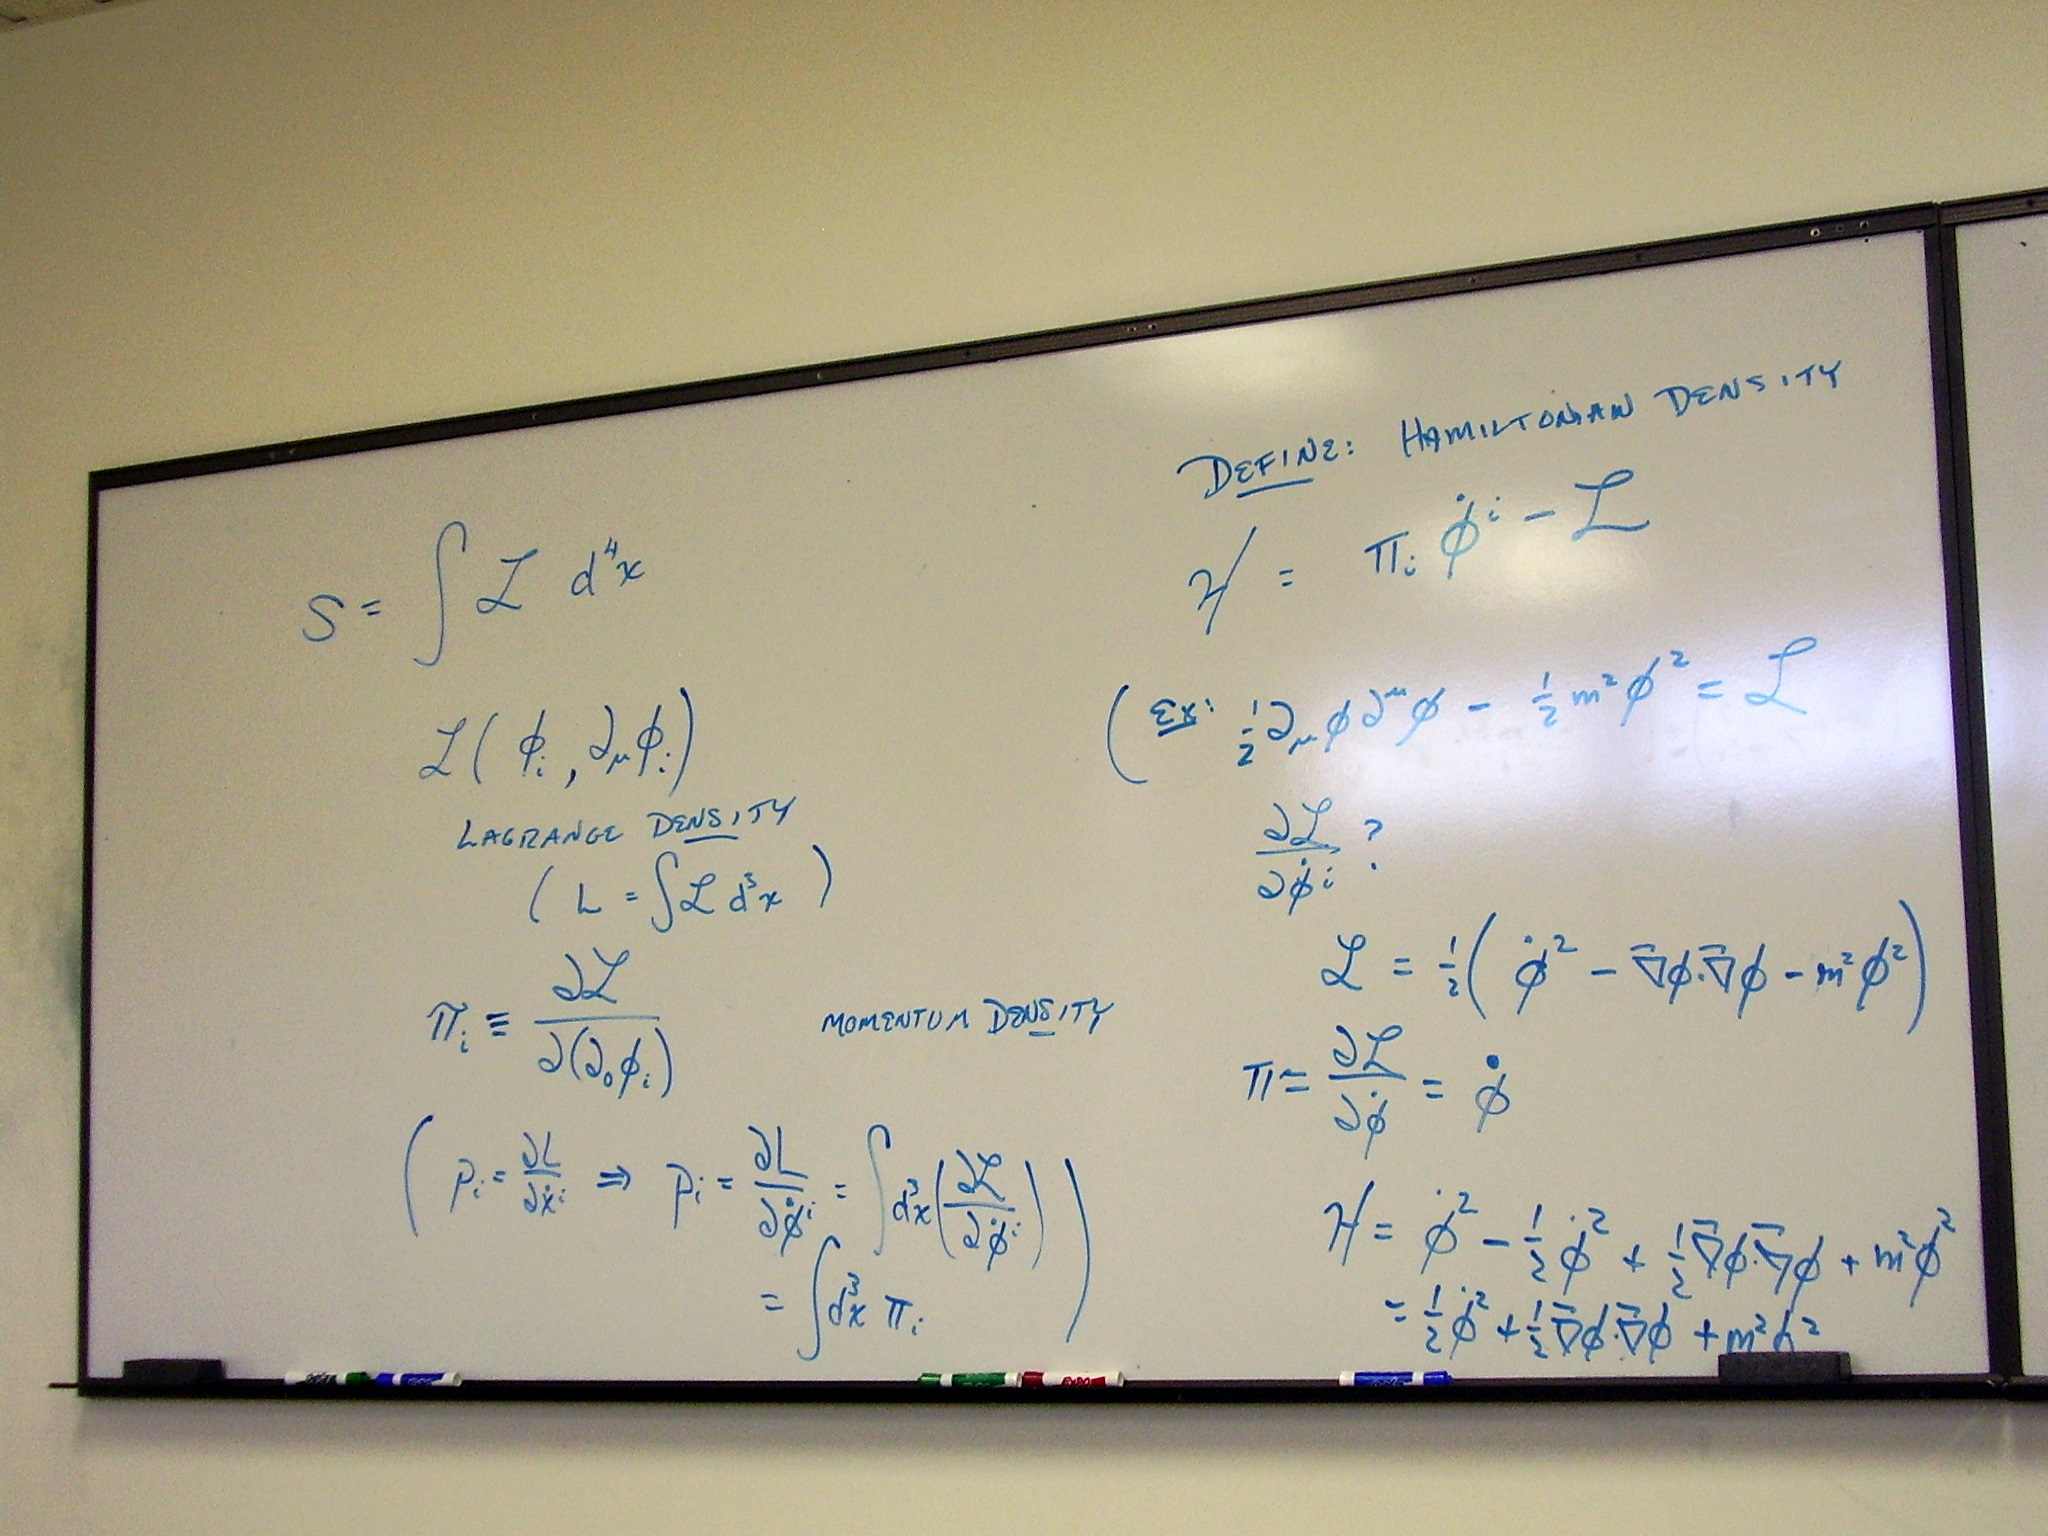 S = ∫ ℒ d⁴x
ℒ( ϕᵢ , ∂_μ ϕᵢ )
LAGRANGE DENSITY
( L = ∫ ℒ d³x )
πᵢ ≡ ∂ℒ / ∂(∂₀ϕᵢ) MOMENTUM DENSITY
( pᵢ = ∂L/∂ẋⁱ ⇒ pᵢ = ∂L/∂ϕ̇ⁱ = ∫ d³x ( ∂ℒ/∂ϕ̇ⁱ )
= ∫ d³x πᵢ )
DEFINE: HAMILTONIAN DENSITY
ℋ = πᵢ ϕ̇ⁱ − ℒ
( Ex: ½ ∂_μ ϕ ∂^μ ϕ − ½ m² ϕ² = ℒ
∂ℒ/∂ϕ̇ⁱ ?
ℒ = ½ ( ϕ̇² − ∇̄ϕ·∇̄ϕ − m² ϕ² )
π = ∂ℒ/∂ϕ̇ = ϕ̇
ℋ = ϕ̇² − ½ ϕ̇² + ½ ∇̄ϕ·∇̄ϕ + m² ϕ²
= ½ ϕ̇² + ½ ∇̄ϕ·∇̄ϕ + m² ϕ²
EXPO